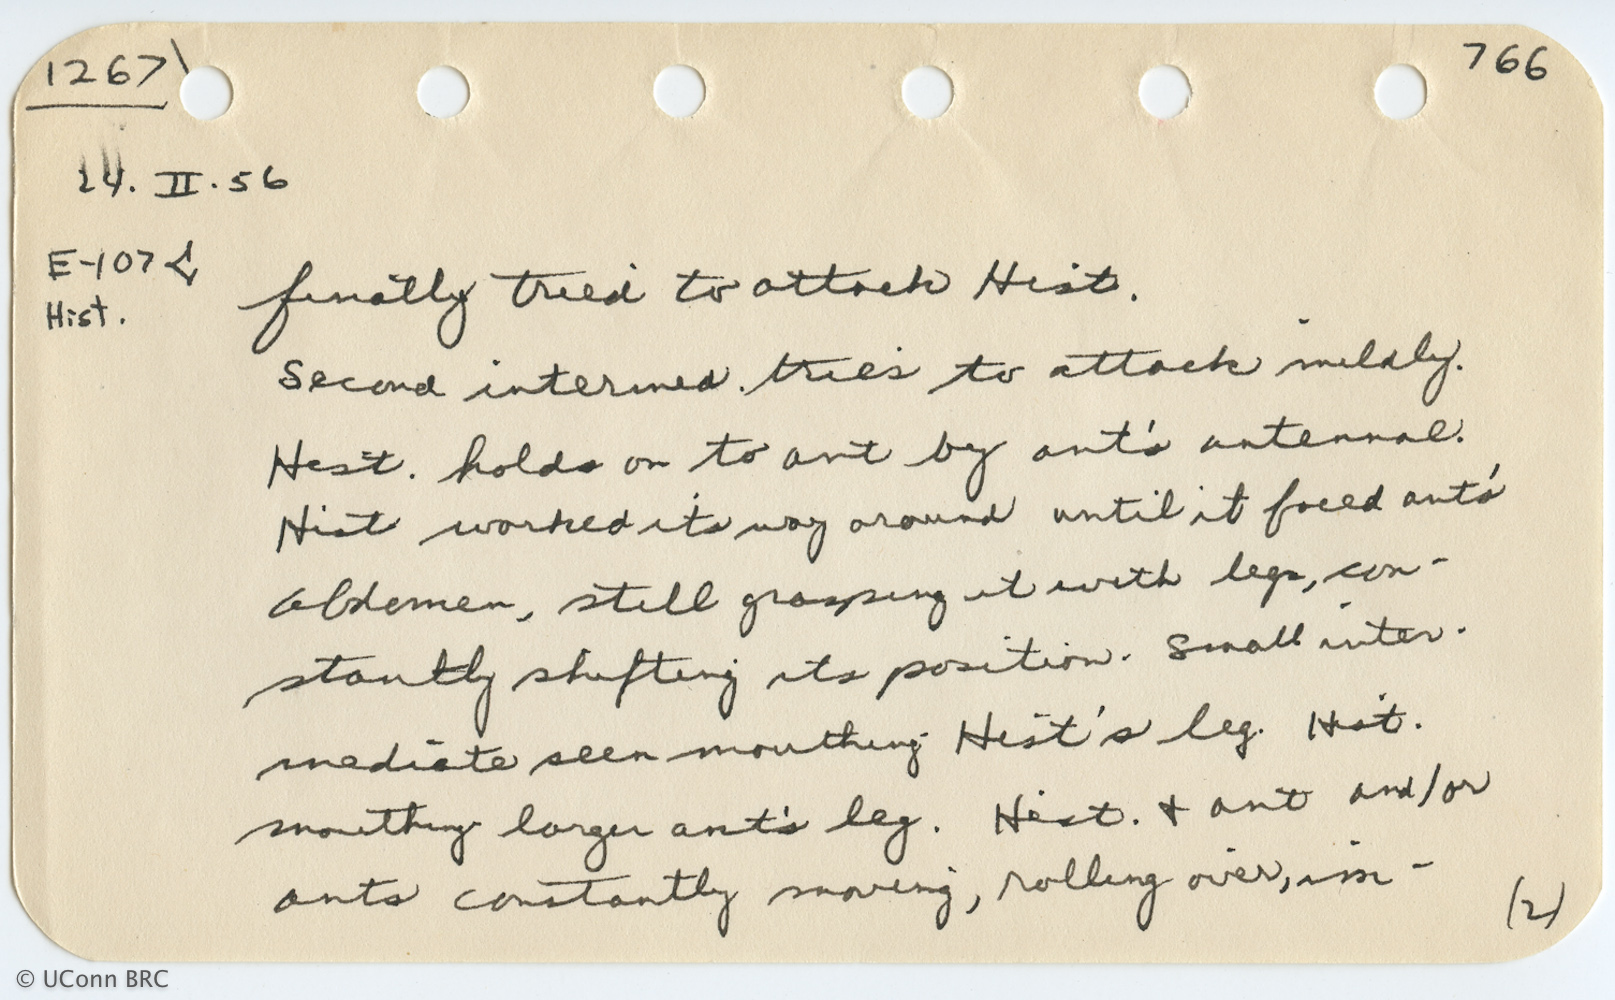 1267 766
24. II. 56
E-107 &
Hist.
finally tried to attack Hist.
Second intermed. tries to attack mildly.
Hist. holds on to ant by ant's antennae.
Hist worked its way around until it faced ant's
abdomen, still grasping it with legs, con-
stantly shifting its position. Small inter-
mediate seen mouthing Hist's leg. Hist.
mouthing larger ant's leg. Hist. & ant and/or
ants constantly moving, rolling over, im-
(2)
© UConn BRC